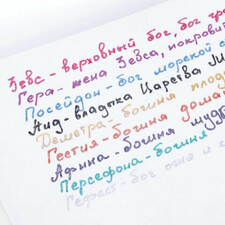 Зевс - верховный бог, бог
Гера - жена Зевса, покровит
Посейдон - бог морской с
Аид - владыка Царства М
Деметра - богиня плод
Гестия - богиня дома
Афина - богиня мудр
Персефона - богиня
Гефест - бог огня и к